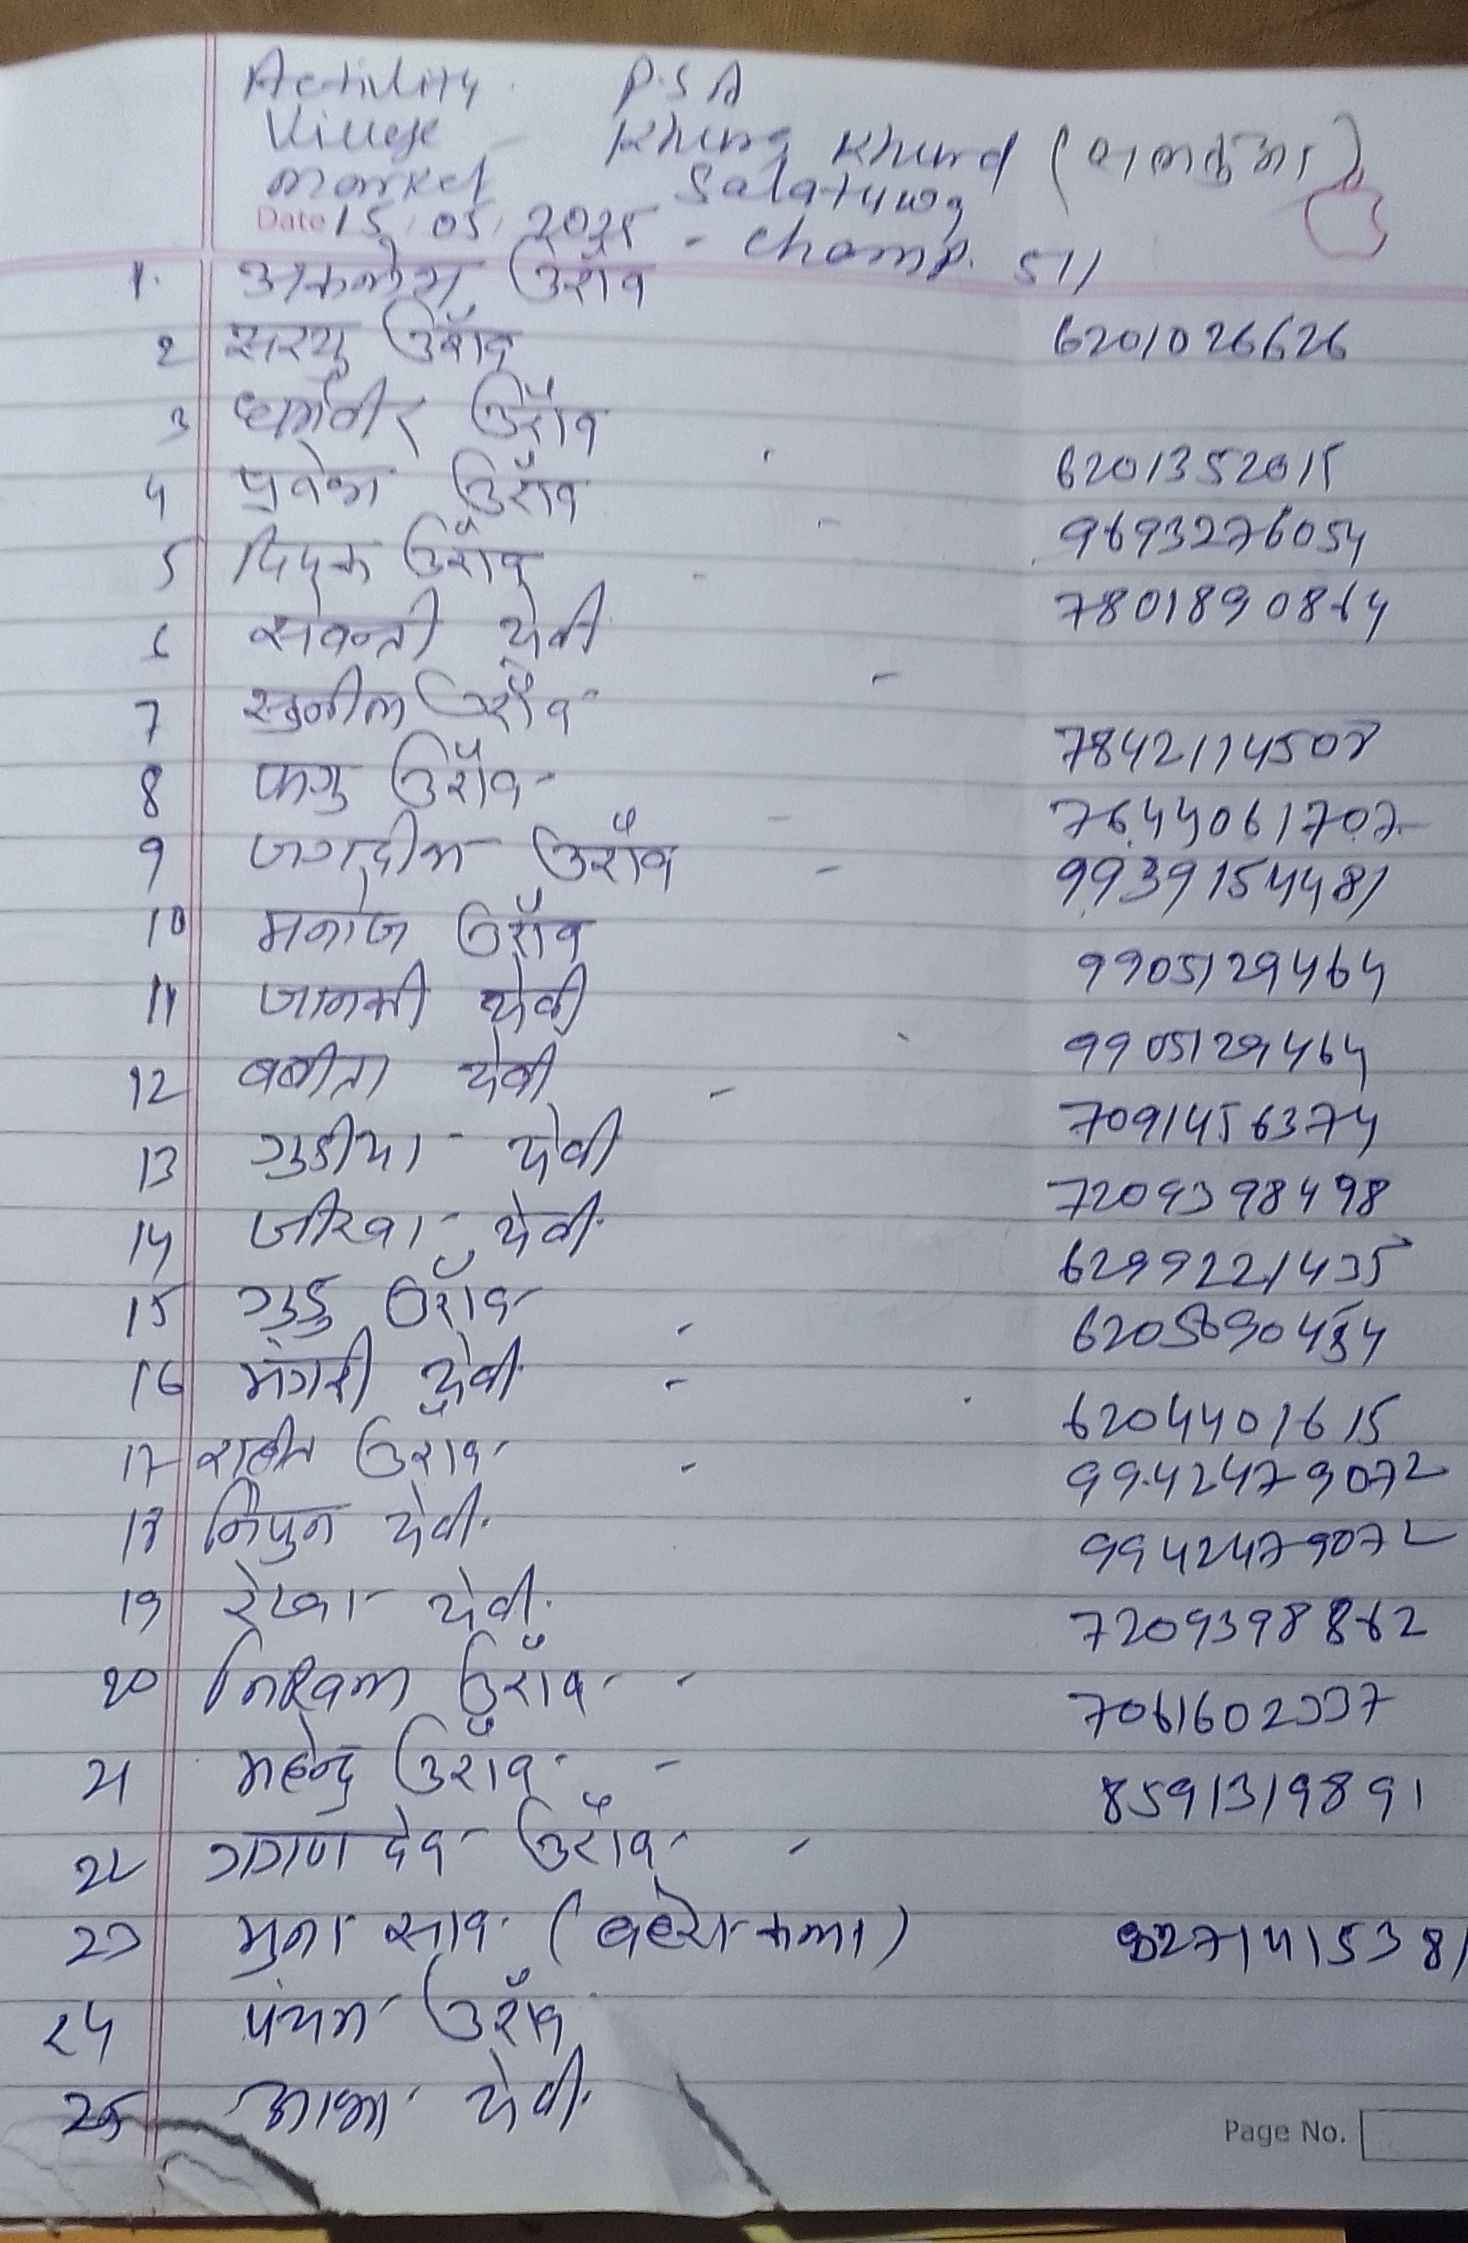 Activity. P.S.A
Village - Khung Khurd
market Salatuwa
Date 15/05/2025 - champ. 511
1. उराँव
2 सरयु उराँव 6201026626
3 धर्मवीर उराँव
4 प्रवेश उराँव 6201352015
5 दिपक उराँव 9693276054
6 सेवन्ती देवी 7801890864
7 सुनील उराँव
8 फागु उराँव 7842114508
9 जगदीश उराँव 7644061707
10 मनोज उराँव 9939154481
11 जानकी देवी 9905129464
12 बबीता देवी 9905129464
13 गुडीया देवी 7091456374
14 जीरवा देवी 7209398498
15 गुडु उराँव 6299221435
16 मंगरी देवी
17 उराँव 6204401615
18 निपुन देवी 9942479072
19 रेखा देवी 9942479072
20 उराँव 7209398862
21 महेन्द्र उराँव 7061602337
22 गगण देव उराँव 8591319891
23 मुना साव (बहेरा कला) 9271415381
24 पंचम उराँव
25 आशा देवी
Page No.